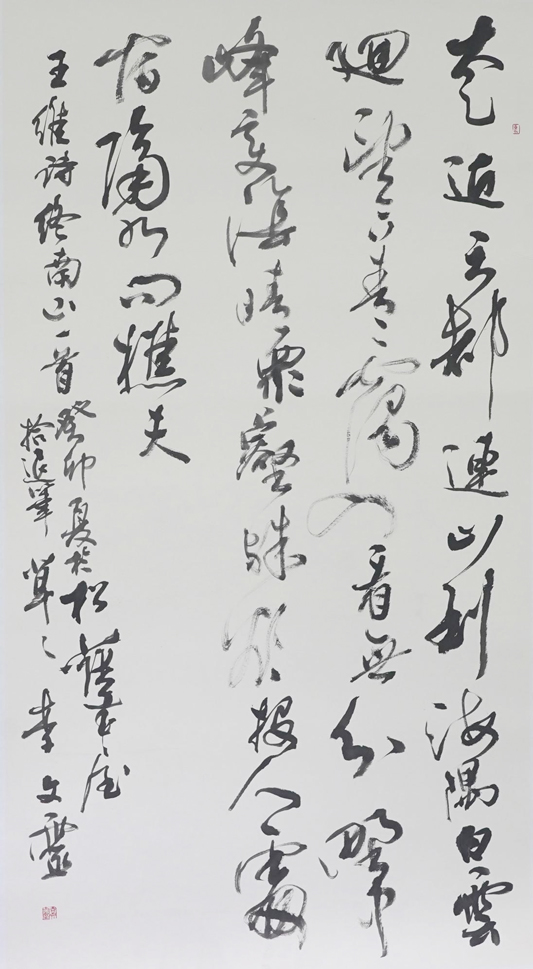 太乙近天都連山到海隅白雲
迴望合青靄入看無分野中
峰變陰晴衆壑殊欲投人處
宿隔水問樵夫
王維詩終南山一首癸卯夏於松草屋
拾退筆草々李文